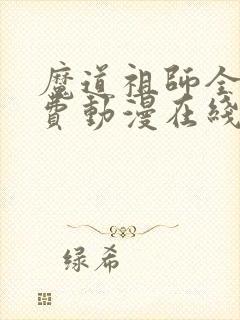 魔道祖師全
費動漫在綫
绿希